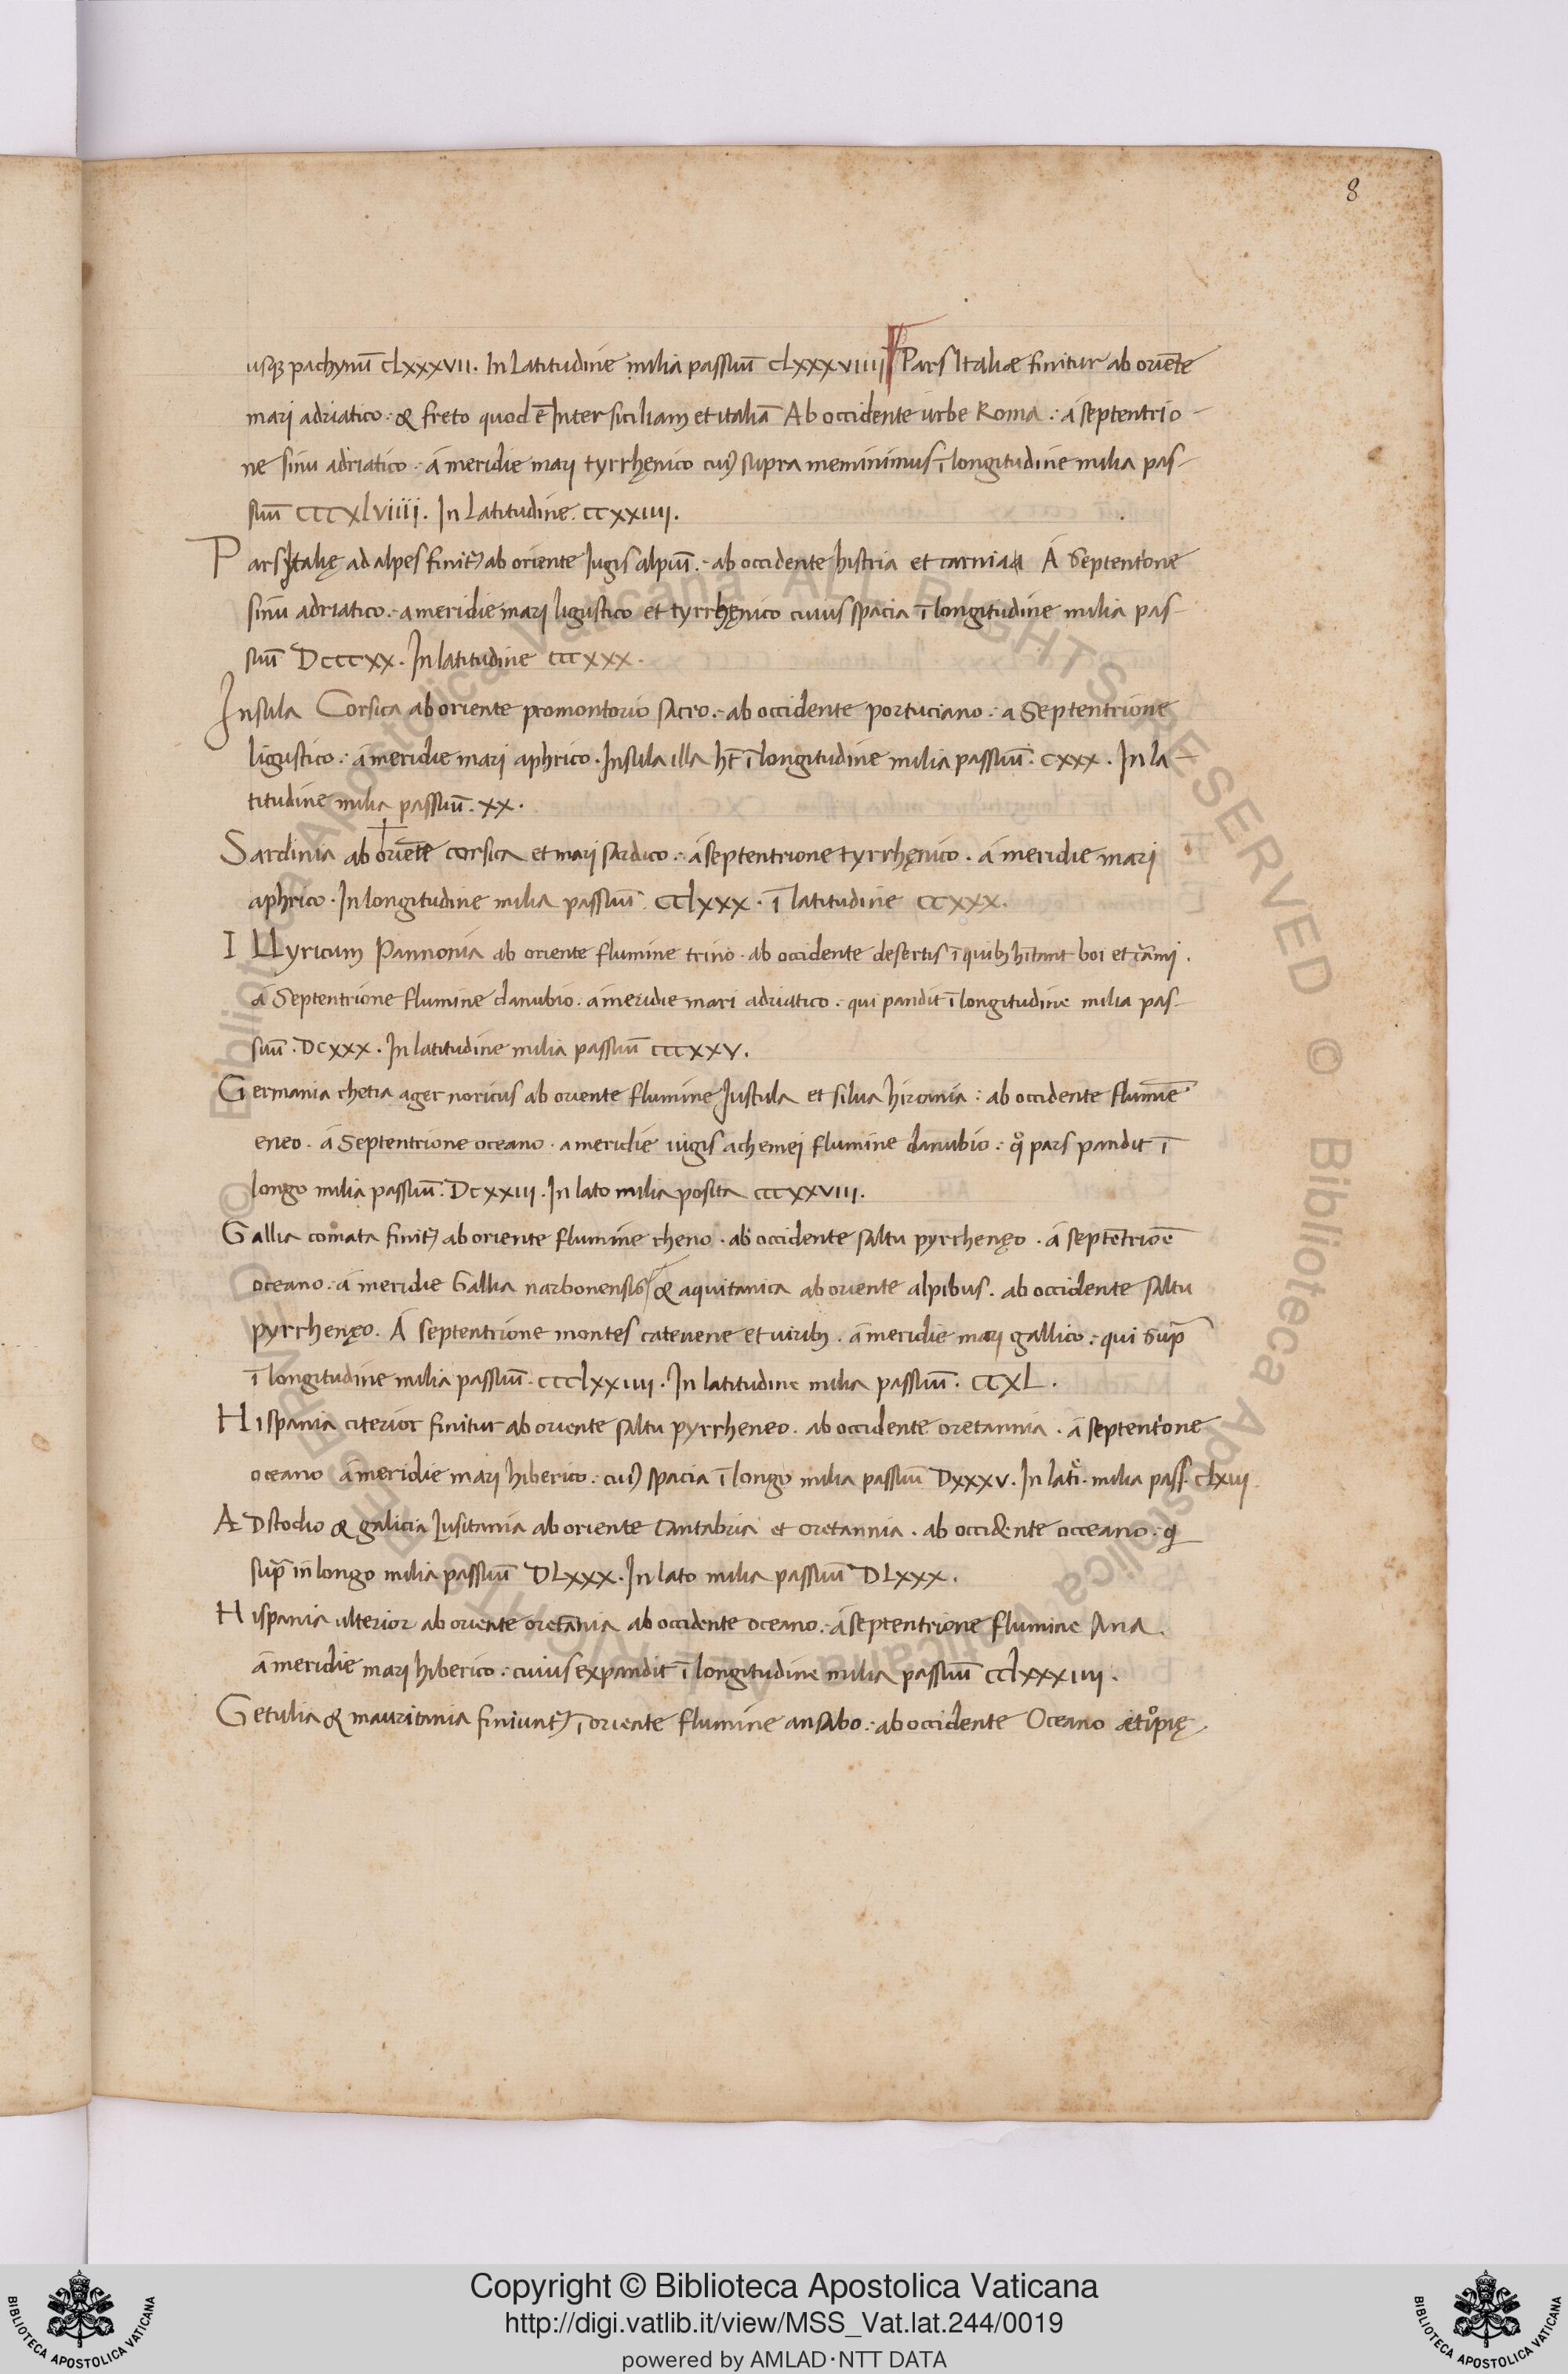 8
usqꝫ pachynū CLxxxvii. In Latitudine milia passuū CLxxxviiii Pars Italiæ finitur ab oriēte
mari adriatico: & freto quod ē Inter siciliam et italiā Ab occidente urbe Roma: á septentrio-
ne sinu adriatico: á meridie mari tyrrhęnico cuiꝰ supra meminimus ī longitudine milia pas-
suū CCCxlviiii. In Latitudine. CCxxiiii.
Pars Italię ad alpes finitꝭ ab oriente Iugis alpiū: ab occidente histria et carnia Á Septentrone
sinū adriatico: a meridie mari ligustico et tyrrhęnico cuius spacia ī longitudine milia pas-
suū DCCCxx. In latitudine CCCxxx.
Insula Corsica ab oriente promontorio sacro: ab occidente portuciano: a Septentrione
ligustico: á meridie mari aphrico. Insula illa hт̄ ī longitudine milia passuū. Cxxx. In la-
titudine milia passuū. xx.
Sardinia ab oriēte corsica et mari sardico: á septentrione tyrrhęnico. á meridie mari
aphrico. In longitudine milia passuū CClxxx. ī latitudine CCxxx.
ILLyricum Pannonia ab oriente flumine trino. ab occidente desertis ī quibꝫ hītant boi et
á Septentrione flumine danubio. a meridie mari adriatico: qui pandit ī longitudine milia pas-
suū. DCxxx. In latitudine milia passuū CCCxxv.
Germania rhetia ager noricus ab oriente flumine Iustula et silua hircinia: ab occidente flumīe
eneo. á Septentrione oceano. a meridie iugis achemei flumine danubio: qͦ pars pandit ī
longo milia passuū. DCxxiii. In lato milia posita CCCxxviii.
Gallia comata finitꝭ ab oriente flumine rheno. ab occidente saltu pyrrhenęo. á septētriōe
oceano. á meridie Gallia narbonensis & aquitanica ab oriente alpibus. ab occidente saltu
pyrrhenęo. Á septentrione montes catevene et viribꝫ. á meridie mari gallico: qui supᷓ
ī longitudine milia passuū. CCClxxiiii. In latitudine milia passuū. CCXL.
Hispania citerior finitur ab oriente saltu pyrrheneo. ab occidente oretannia. á septentrone
oceano á meridie mari hiberico: cuiꝰ spacia ī longo milia passuū Dxxxv. In lati. milia pass. clxiii
ADstodio & galicia lusitania ab oriente cantabria et oretannia. ab occidente occeano. q
supᷓ in longo milia passuū DLxxx. In lato milia passuū DLxxx.
Hispania ulterior ab oriente oretāia ab occidente oceano: á septentrione flumine Ana.
á meridie mari hiberico: cuius expandit ī longitudine milia passuū CClxxxiiii.
Getulia & mauritania finiuntꝭ ī oriente flumine ansabo: ab occidente Oceano
© Biblioteca Apostolica Vaticana ALL RIGHTS RESERVED © Biblioteca Apostolica Vaticana ALL RIGHTS RESERVED
BIBLIOTECA APOSTOLICA VATICANA
Copyright © Biblioteca Apostolica Vaticana
http://digi.vatlib.it/view/MSS_Vat.lat.244/0019
powered by AMLAD·NTT DATA
BIBLIOTECA APOSTOLICA VATICANA